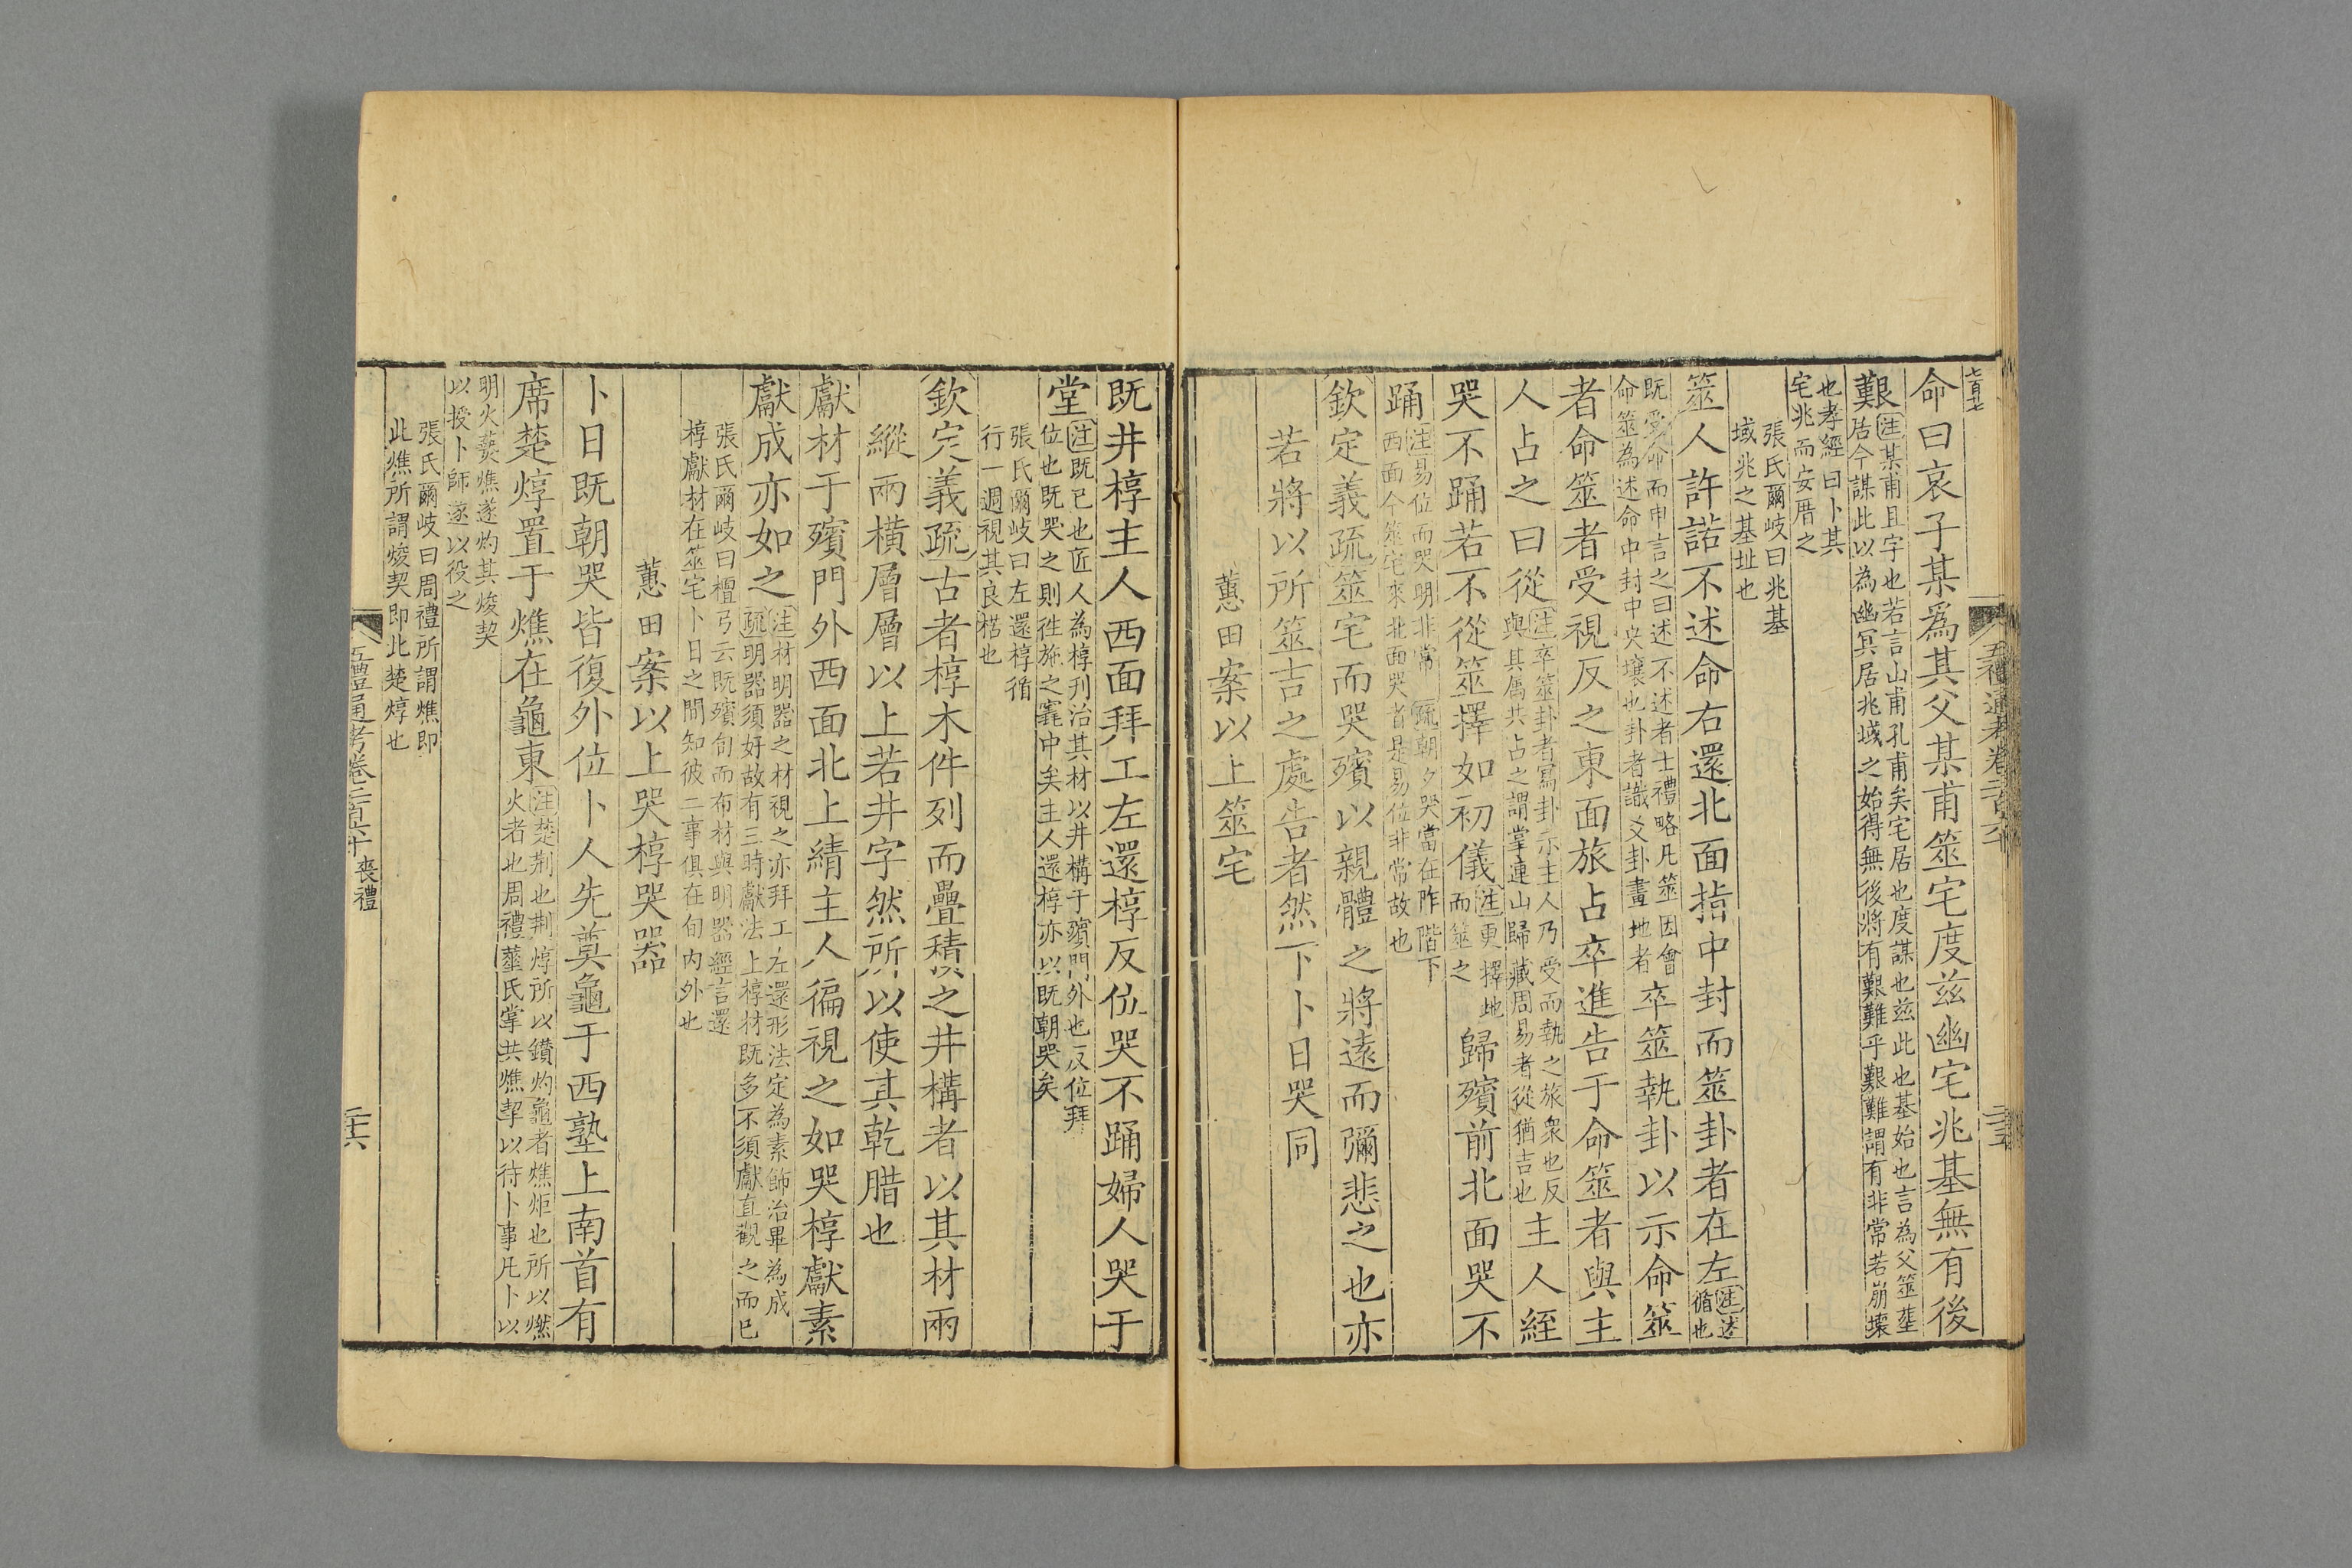 命曰哀子某爲其父某甫筮宅度兹幽宅兆基無有後
艱
注某甫且字也若言山甫孔甫矣宅居也度謀也兹此也基始也言為父筮葬
居今謀此以為幽冥居兆域之始得無後將有艱難乎艱難謂有非常若崩壞
也孝經曰卜其
宅兆而安厝之
張氏爾岐曰兆基
域兆之基址也
筮人許諾不述命右還北面指中封而筮卦者在左
注述
循也
既受命而申言之曰述不述者士禮略凡筮因會
命筮為述命中封中央壤也卦者識爻卦畫地者
卒筮執卦以示命筮
者命筮者受視反之東面旅占卒進告于命筮者與主
人占之曰從
注卒筮卦者寫卦示主人乃受而執之旅衆也反
與其属共占之謂掌連山歸藏周易者從猶吉也
主人絰
哭不踊若不從筮擇如初儀
注更擇地
而筮之
歸殯前北面哭不
踊
注易位而哭明非常 疏朝夕哭當在阼階下
西面今筮宅來北面哭者是易位非常故也
欽定義疏筮宅而哭殯以親體之將遠而彌悲之也亦
若將以所筮吉之處告者然下卜日哭同
蕙田案以上筮宅
既井椁主人西面拜工左還椁反位哭不踊婦人哭于
堂
注既已也匠人為椁刊治其材以井構于殯門外也反位拜
位也既哭之則往施之竁中矣主人還椁亦以既朝哭矣
張氏爾岐曰左還椁循
行一週視其良楛也
欽定義疏古者椁木件列而疊積之井構者以其材兩
縱兩橫層層以上若井字然所以使其乾腊也
獻材于殯門外西面北上綪主人徧視之如哭椁獻素
獻成亦如之
注材明器之材視之亦拜工左還形法定為素飾治畢為成
疏明器須好故有三時獻法上椁材既多不須獻直觀之而已
張氏爾岐曰檀弓云既殯旬而布材與明器經言還
椁獻材在筮宅卜日之間知彼二事俱在旬内外也
蕙田案以上哭椁哭器
卜日既朝哭皆復外位卜人先奠龜于西塾上南首有
席楚焞置于燋在龜東
注楚荆也荆焞所以鑽灼龜者燋炬也所以燃
火者也周禮菙氏掌共燋挈以待卜事凡卜以
明火爇燋遂灼其焌契
以授卜師遂以役之
張氏爾岐曰周禮所謂燋即
此燋所謂焌契即此楚焞也
五禮通考卷二百六十 喪禮
二十六